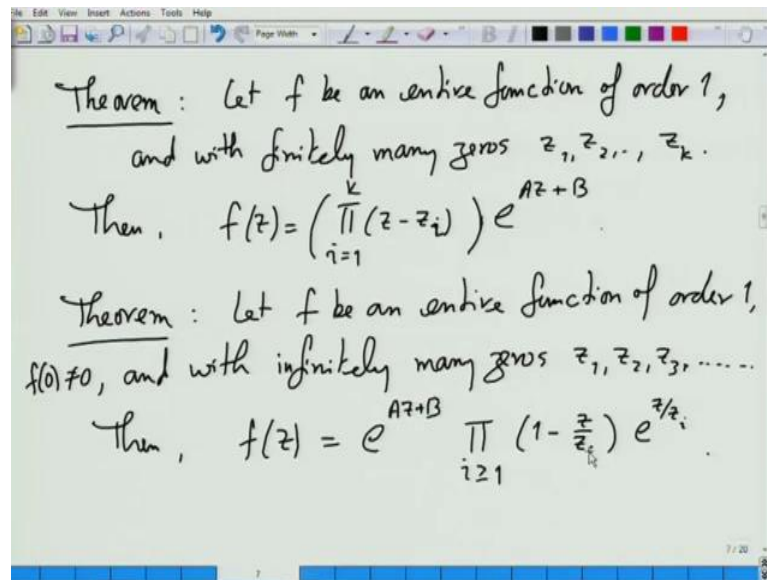 File Edit View Insert Actions Tools Help
Page Width
Theorem : Let f be an entire function of order 1,
and with finitely many zeros z_1, z_2, .., z_k.
Then, f(z) = ( ∏_{i=1}^{k} (z - z_i) ) e^{Az + B}
Theorem : Let f be an entire function of order 1,
f(0) ≠ 0, and with infinitely many zeros z_1, z_2, z_3, ......
Then, f(z) = e^{Az+B} ∏_{i≥1} (1 - z/z_i) e^{z/z_i} .
7 / 20
7